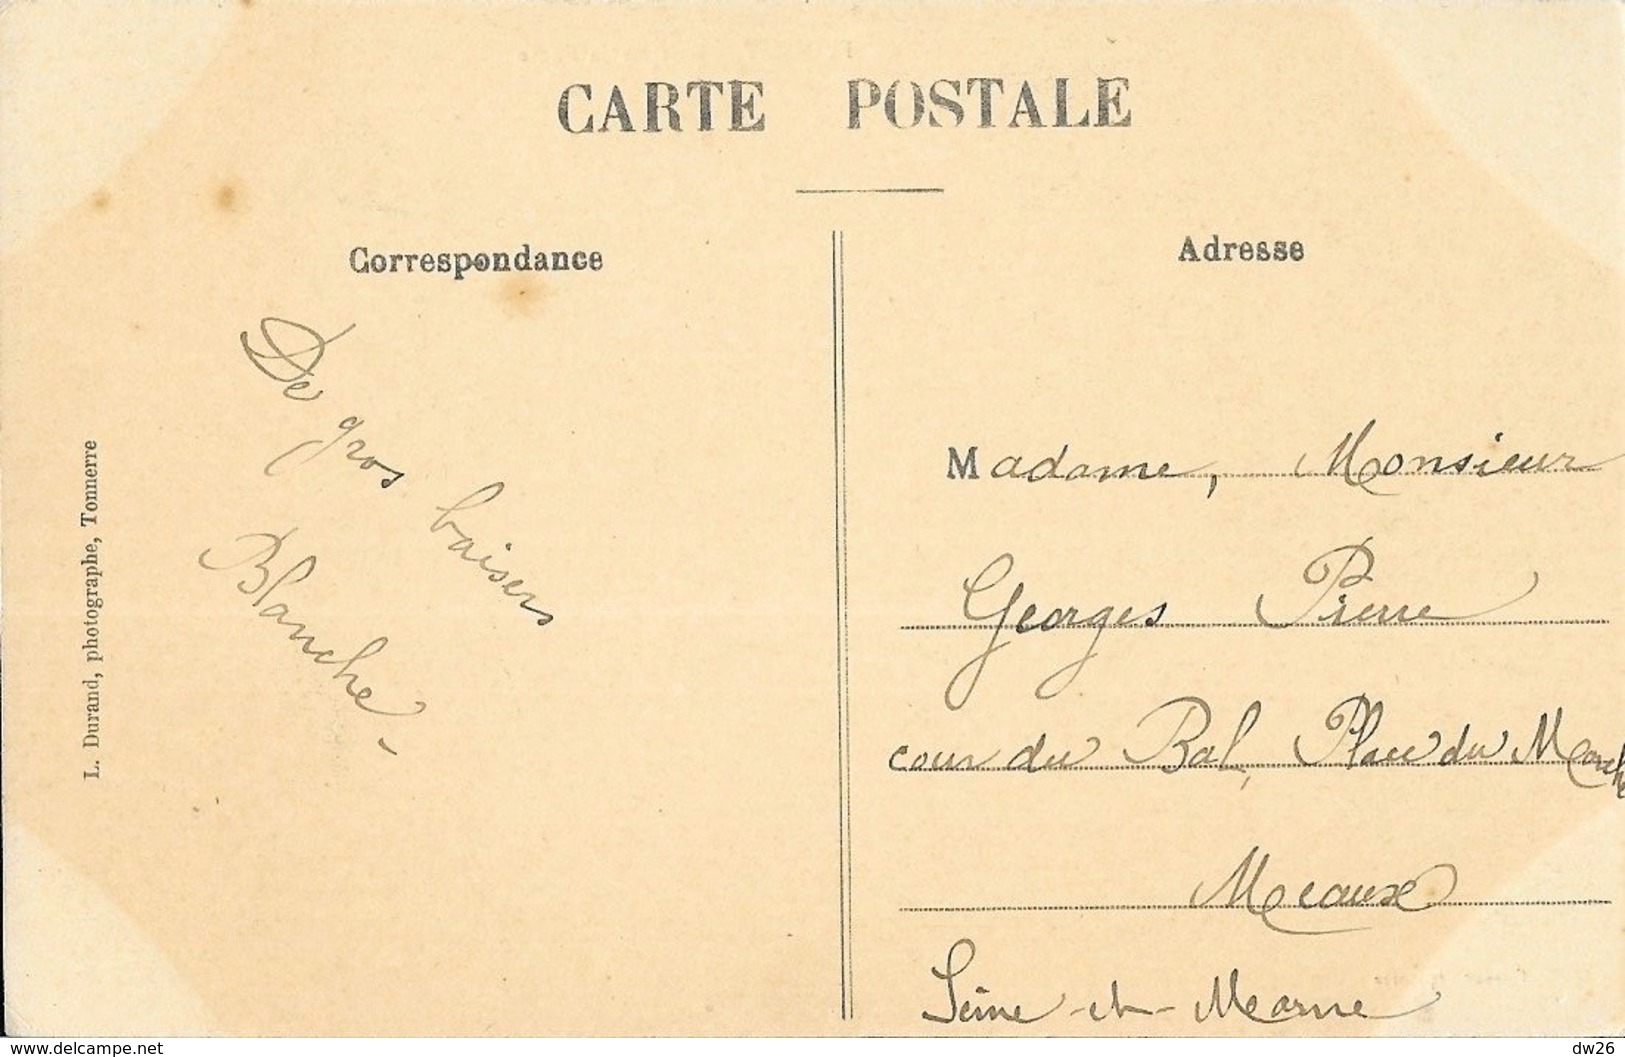 CARTE POSTALE
Correspondance
Adresse
De gros baisers
Blanche -
L. Durand, photographe, Tonnerre
Madame, Monsieur
Georges Pierre
cour du Bal, Place du Marché
Meaux
Seine-et-Marne
© delcampe.net
dw26